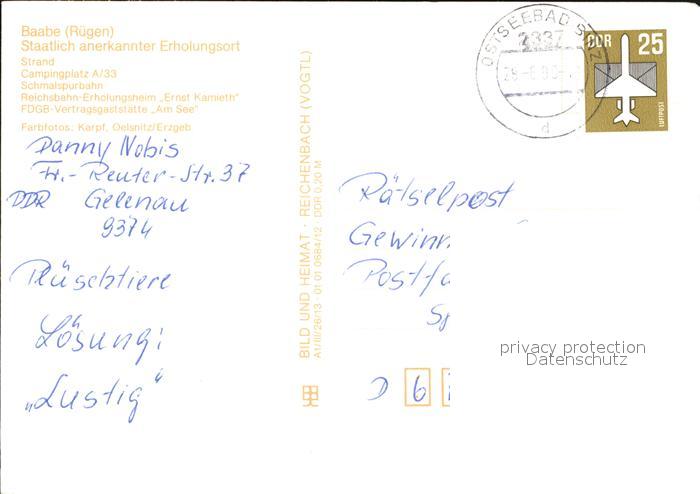 Baabe (Rügen)
Staatlich anerkannter Erholungsort
Strand
Campingplatz A/33
Schmalspurbahn
Reichsbahn-Erholungsheim „Ernst Kamieth"
FDGB-Vertragsgaststätte „Am See"
Farbfotos: Karpf, Oelsnitz/Erzgeb
Danny Nobis
Fr.-Reuter-Str. 37
DDR Gelenau
9374
Plüschtiere
Lösung:
„Lustig"
BILD UND HEIMAT · REICHENBACH (VOGTL)
A1/III/26/13 · 01 01 0684/12 · DDR 0,20 M
OSTSEEBAD
2337
d
DDR 25
LUFTPOST
Rätselpost
Gewinn
Postfa
D 6
privacy protection
Datenschutz